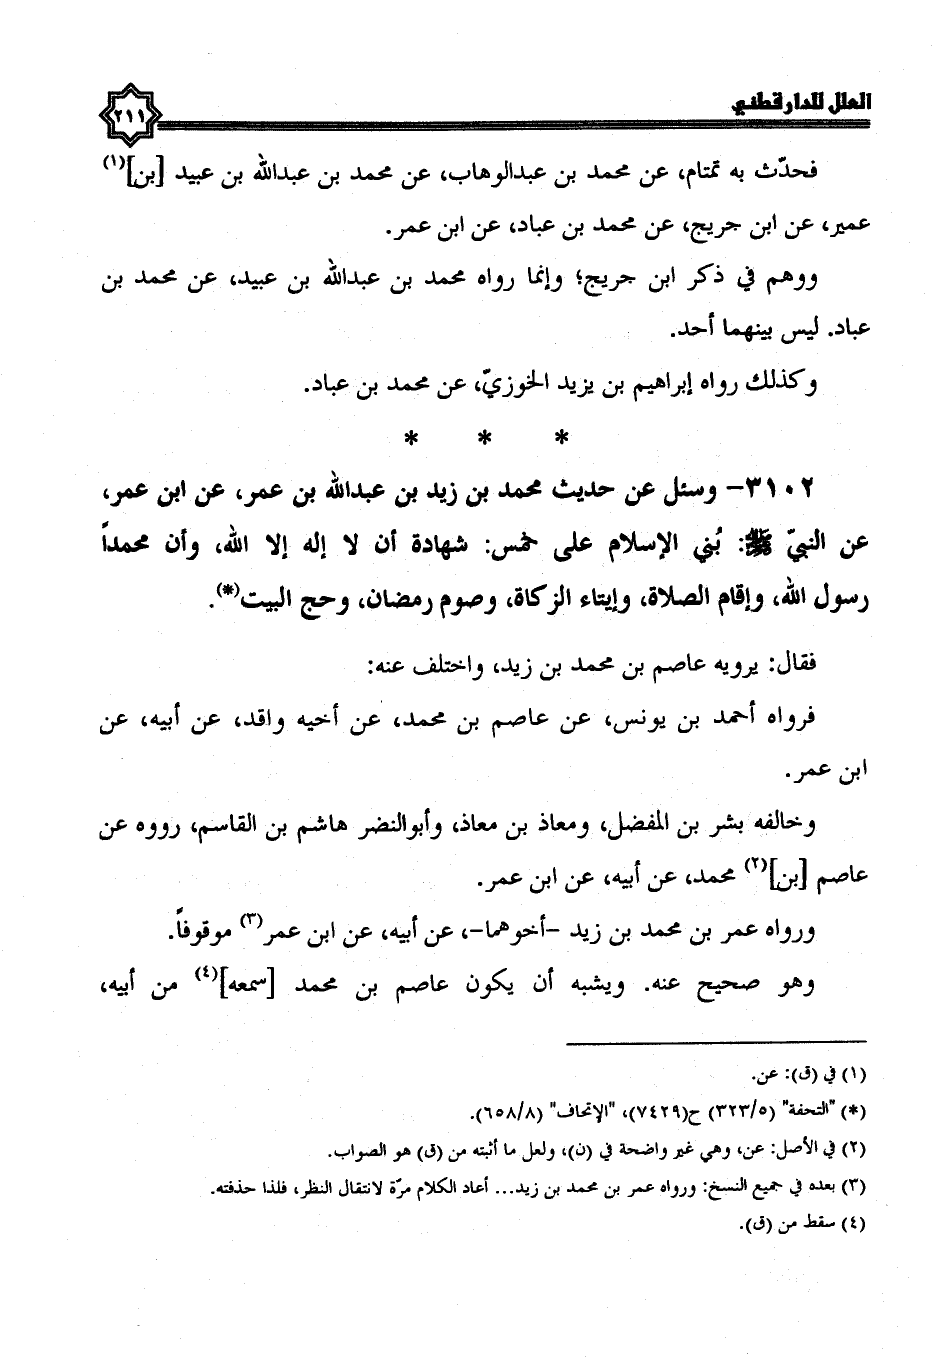 العلل للدارقطني
٢١١
فحدّث به تمتام، عن محمد بن عبدالوهاب، عن محمد بن عبدالله بن عبيد [بن](١)
عمير، عن ابن جريج، عن محمد بن عباد، عن ابن عمر.
ووهم في ذكر ابن جريج؛ وإنما رواه محمد بن عبدالله بن عبيد، عن محمد بن
عباد. ليس بينهما أحد.
وكذلك رواه إبراهيم بن يزيد الخوزيّ، عن محمد بن عباد.
* * *
٣١٠٢- وسئل عن حديث محمد بن زيد بن عبدالله بن عمر، عن ابن عمر،
عن النبيّ ﷺ: بُني الإسلام على خمس: شهادة أن لا إله إلا الله، وأن محمداً
رسول الله، وإقام الصلاة، وإيتاء الزكاة، وصوم رمضان، وحج البيت(*).
فقال: يرويه عاصم بن محمد بن زيد، واختلف عنه:
فرواه أحمد بن يونس، عن عاصم بن محمد، عن أخيه واقد، عن أبيه، عن
ابن عمر.
وخالفه بشر بن المفضل، ومعاذ بن معاذ، وأبوالنضر هاشم بن القاسم، رووه عن
عاصم [بن](٢) محمد، عن أبيه، عن ابن عمر.
ورواه عمر بن محمد بن زيد -أخوهما-، عن أبيه، عن ابن عمر(٣) موقوفاً.
وهو صحيح عنه. ويشبه أن يكون عاصم بن محمد [سمعه](٤) من أبيه،
(١) في (ق): عن.
(*) "التحفة" (٣٢٣/٥) ح(٧٤٢٩)، "الإتحاف" (٦٥٨/٨).
(٢) في الأصل: عن، وهي غير واضحة في (ن)، ولعل ما أثبته من (ق) هو الصواب.
(٣) بعده في جميع النسخ: ورواه عمر بن محمد بن زيد... أعاد الكلام مرّة لانتقال النظر، فلذا حذفته.
(٤) سقط من (ق).